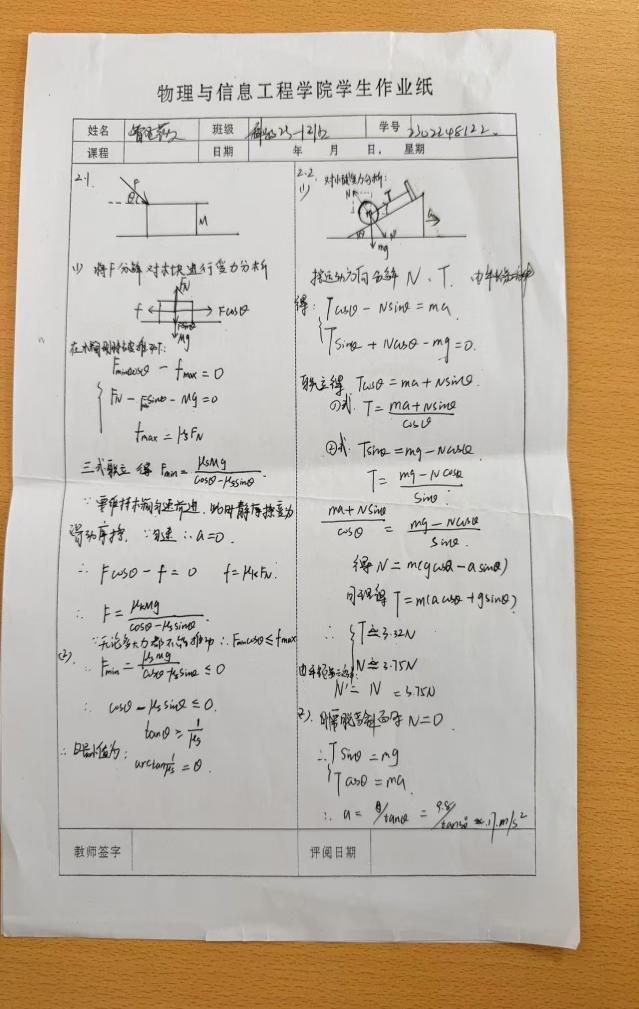 物理与信息工程学院学生作业纸
姓名
班级
学号 2302248122
课程
日期 年 月 日, 星期
2.1
F
θ
M
(1) 将F分解对木块进行受力分析
FN
f
Fcosθ
Fsinθ
Mg
Fmincosθ - fmax = 0
FN - Fsinθ - Mg = 0
fmax = μsFN
三式联立 得 Fmin = μsMg / cosθ-μssinθ
∵要维持木箱匀速前进, 此时静摩擦变为
滑动摩擦, ∵匀速 ∴ a=0.
∴ Fcosθ - f = 0 f = μkFN.
∴ F = μkMg / cosθ-μssinθ
(2) ∵无论多大力都不能推动 ∴ Fmincosθ ≤ fmax
∴ Fmin = μsMg / cosθ-μssinθ ≤ 0
∴ cosθ - μssinθ ≤ 0.
tanθ ≥ 1/μs
∴ θ最小值为:
arctan 1/μs = θ.
2.2
(1) 受力分析:
N
T
mg
a
按运动方向分解 N、T.
得: Tcosθ - Nsinθ = ma
Tsinθ + Ncosθ - mg = 0.
联立得 Tcosθ = ma + Nsinθ.
①式. T = ma+Nsinθ / cosθ
②式. Tsinθ = mg - Ncosθ
T = mg - Ncosθ / sinθ.
ma+Nsinθ / cosθ = mg-Ncosθ / sinθ.
得 N = m(gcosθ - asinθ)
可得 T = m(acosθ + gsinθ)
∴ T ≈ 3.32N
N ≈ 3.75N
N' = N = 3.75N
2). 脱离斜面时 N = 0.
∴ Tsinθ = mg
Tcosθ = ma
∴ a = g/tanθ =
m/s²
教师签字
评阅日期